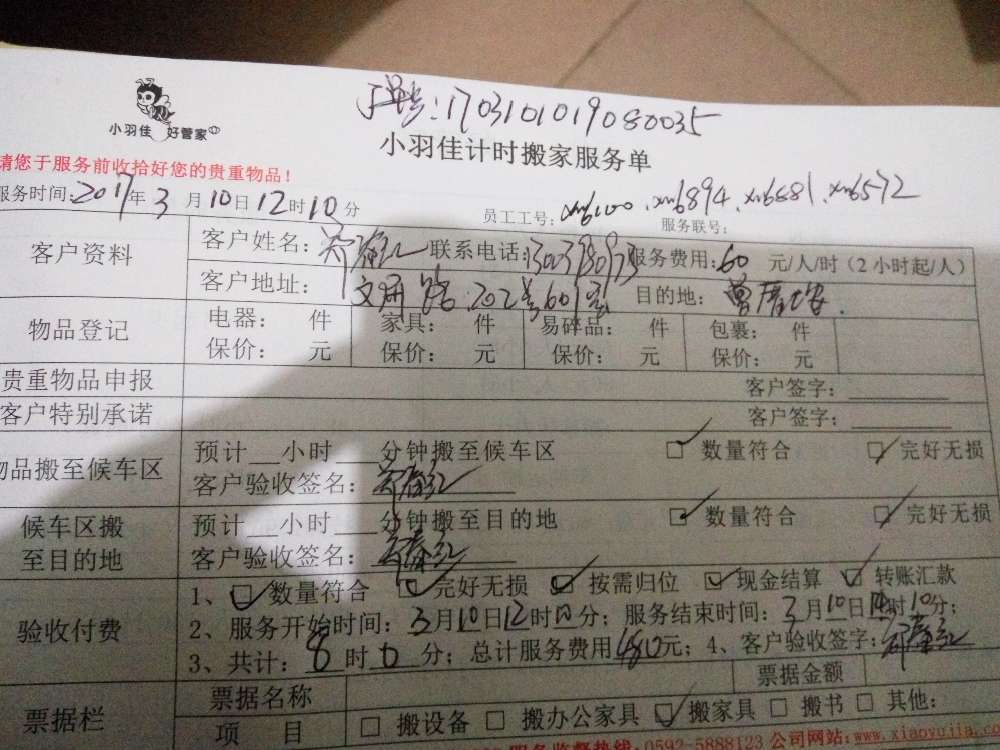 单号:1703101019080035
小羽佳 好管家
小羽佳计时搬家服务单
请您于服务前收拾好您的贵重物品!
服务时间:2017年3月10日12时10分 员工工号: xm6100.xm6894.xm6881.xm6572
服务联号:
客户资料 客户姓名: 联系电话: 服务费用:60 元/人/时(2小时起/人)
客户地址: 202号601室 目的地:
物品登记 电器: 件 家具: 件 易碎品: 件 包裹: 件
保价: 元 保价: 元 保价: 元 保价: 元
贵重物品申报 客户签字:
客户特别承诺 客户签字:
物品搬至候车区 预计__小时__分钟搬至候车区 数量符合 完好无损
客户验收签名:
候车区搬至目的地 预计__小时__分钟搬至目的地 数量符合 完好无损
客户验收签名:
验收付费 1、数量符合 完好无损 按需归位 现金结算 转账汇款
2、服务开始时间:3月10日12时10分;服务结束时间:3月10日 时10分;
3、共计:8时0分;总计服务费用480元;4、客户验收签字:
票据栏 票据名称 票据金额
项 目 搬设备 搬办公家具 搬家具 搬书 其他:
服务监督热线:0592-5888123 公司网站:www.xiaoyujia.com